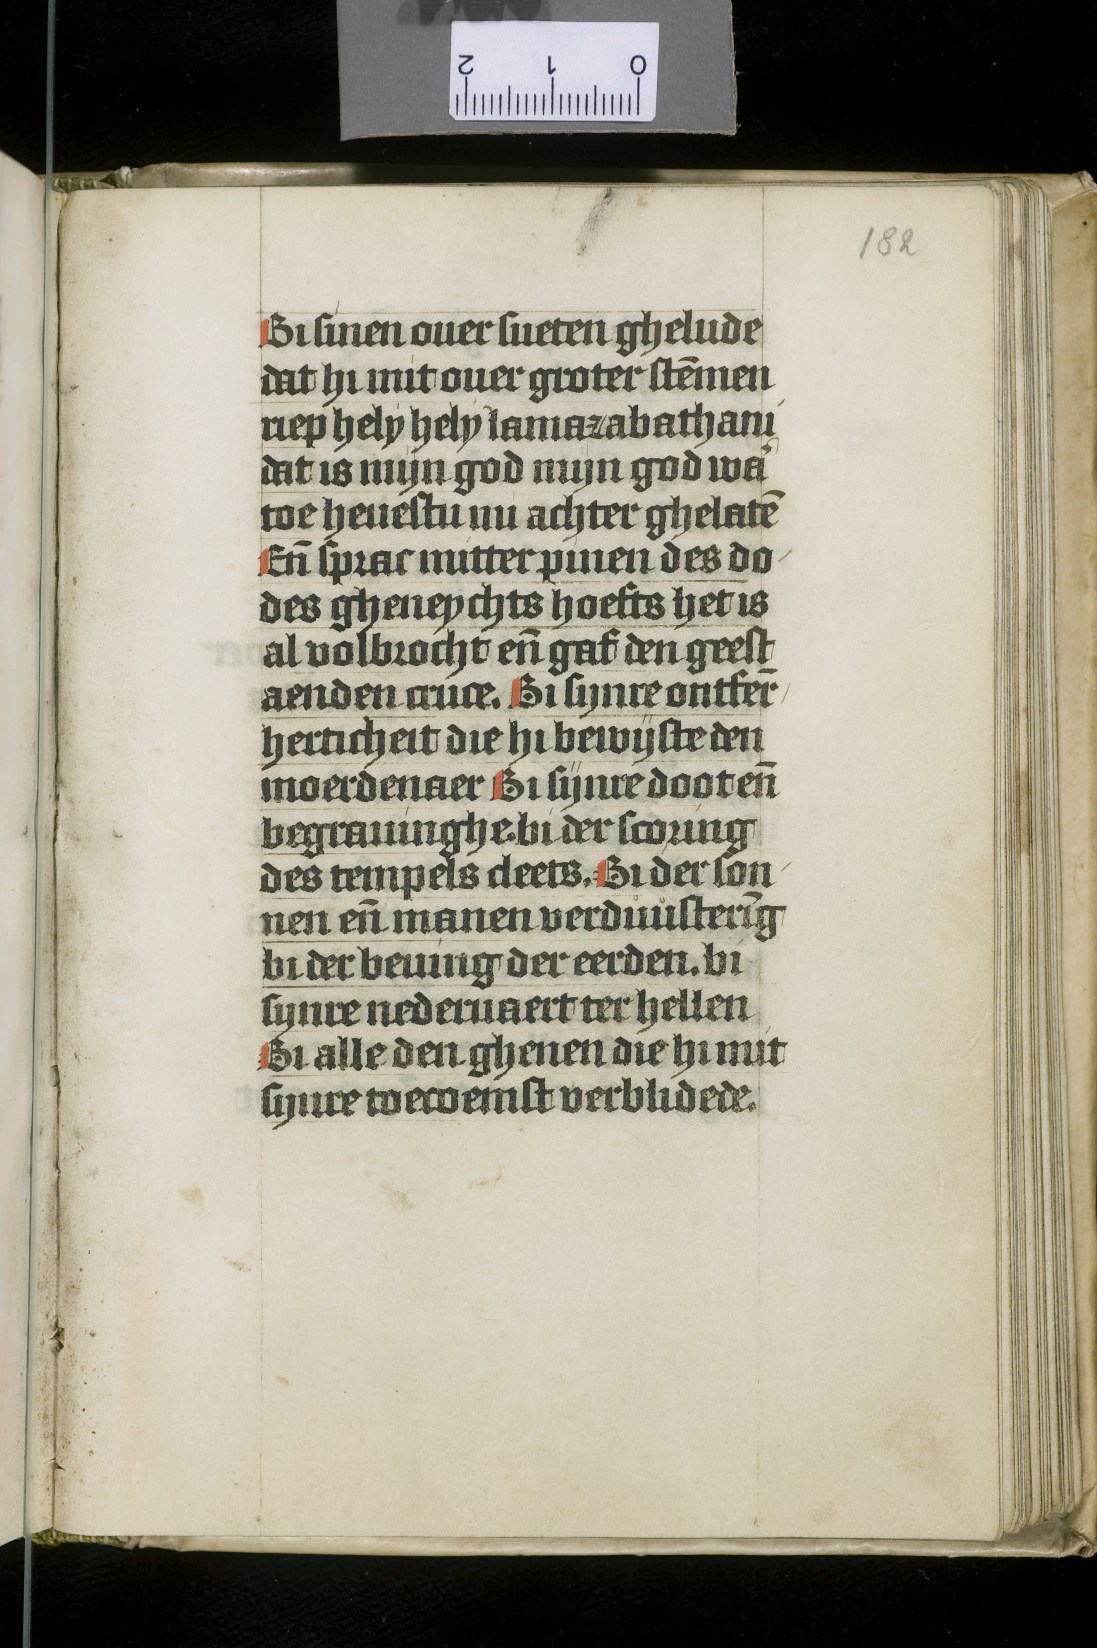 2 1 0
182
Bi sinen ouer sueten ghelude
dat hi mit ouer groter stēmen
riep hely hely lamazabathani
dat is mijn god mijn god waͬ
toe heuestu nu achter ghelatē
En̄ sprac mitter pinen des do
des gheneychts hoefts het is
al volbrocht en̄ gaf den geest
aenden cruce. Bi sijnre ontfer̄
herticheit die hi bewijste den
moerdenaer Bi sijnre doot en̄
begrauinghe. bi der scoring
des tempels cleets. Bi der son
nen en̄ manen verduusterīg
bi der beuing der eerden. bi
sijnre nederuaert ter hellen
Bi alle den ghenen die hi mit
sijnre toecoemst verblidede.